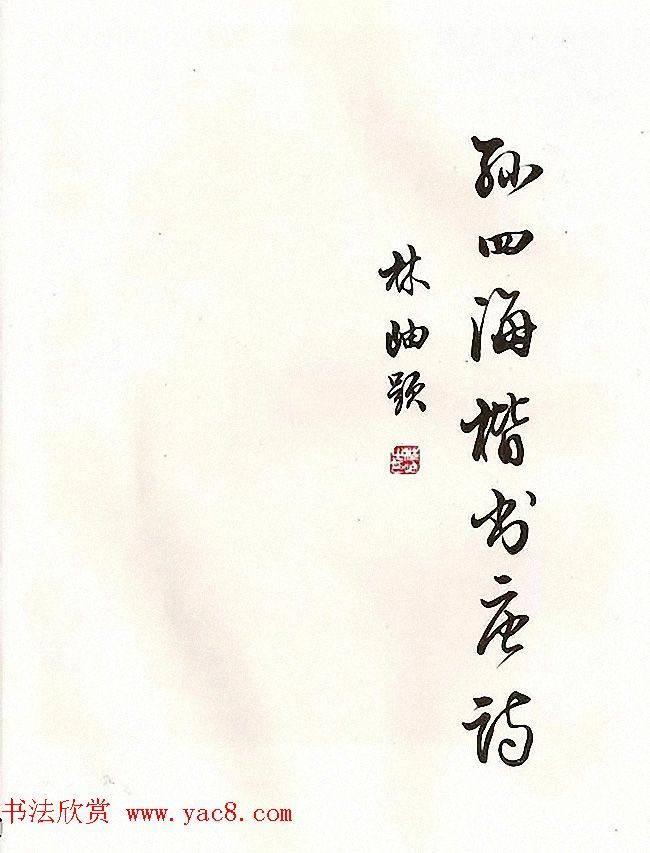 孙四海楷书唐诗
林岫题
书法欣赏 www.yac8.com